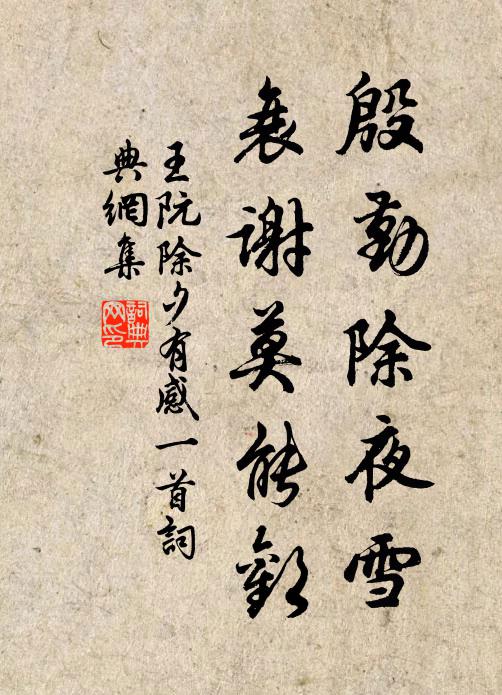 殷勤除夜雪
衰謝莫能
王阮除夕有感一首詞
典網集
詞典
网印